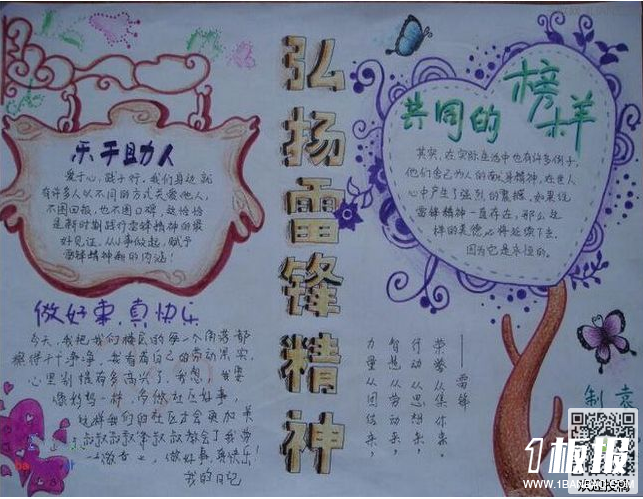 弘扬雷锋精神
乐于助人
爱于心,践于行,我们身边就
有许多人以不同的方式关爱他人,
不图回报,也不图口碑,这恰恰
是新时期践行雷锋精神的最
好见证。从小事做起,赋予
雷锋精神新的内涵!
共同的榜样
其实,在实际生活中也有许多例子,
他们舍己为人的精神,在世人
心中产生了强烈的震撼。如果说
雷锋精神一直存在,那么这
样的美德也将延续下去,
因为它是永恒的。
做好事,真快乐
今天,我把我们楼房的每一个角落都
擦得干干净净,我看着自己的劳动果实,
心里别提有多高兴了。我想:我要
像妈妈一样,常做社区好事,
这样我们的社区才会更加美
做好事,真快乐!
我的日记
——雷锋
荣誉从集体来,
行动从思想来,
智慧从劳动来,
力量从团结来,
制 袁
1板报
WWW.1BANBAO.COM
欢迎投稿